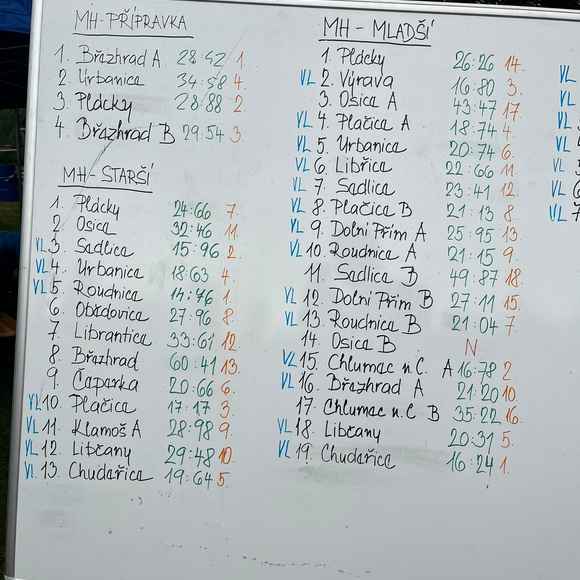 MH-PŘÍPRAVKA
1. Březhrad A 28:42 1.
2. Urbanice 34:58 4.
3. Plácky 28:88 2.
4. Březhrad B 29:54 3.
MH-STARŠÍ
1. Plácky 24:66 7.
2. Osice 32:46 11.
VL 3. Sadlica 15:96 2.
VL 4. Urbanica 18:63 4.
VL 5. Roudnica 14:76 1.
6. Obědovica 27:96 8.
7. Librantica 33:61 12.
8. Březhrad 60:41 13.
9. Čaparka 20:66 6.
VL 10. Plačica 17:17 3.
VL 11. Klamoš A 28:98 9.
VL 12. Libčany 29:48 10.
VL 13. Chudařica 19:64 5.
MH - MLADŠÍ
1. Plácky 26:26 14.
VL 2. Výrava 16:80 3.
3. Osica A 43:47 17.
VL 4. Plačica A 18:74 4.
VL 5. Urbanica 20:74 6.
VL 6. Libřica 22:66 11.
VL 7. Sadlica 23:41 12.
VL 8. Plačica B 21:13 8.
VL 9. Dolní Přím A 25:95 13.
VL 10. Roudnica A 21:15 9.
11. Sadlica B 49:87 18.
VL 12. Dolní Přím B 27:11 15.
VL 13. Roudnica B 21:04 7.
14. Osica B N
VL 15. Chlumac n.C. A 16:78 2
VL 16. Březhrad A 21:20 10.
17. Chlumac n.C B 35:22 16.
VL 18. Libčany 20:31 5.
VL 19. Chudařica 16:24 1.
VL
VL
VL
VL